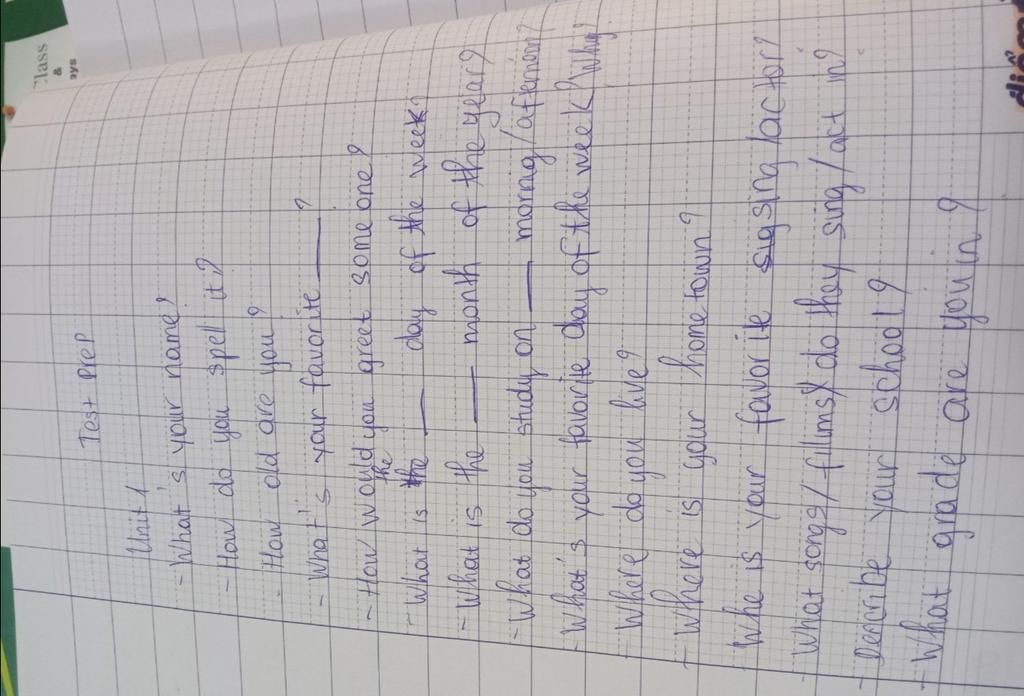 Class
&
ays
điểm
Test PreP
Unit 1
- What's your name?
- How do you spell it?
How old are you?
- What's your favorite ___?
- How would you greet someone?
- What is the the ___ day of the week?
- What is the ___ month of the year?
- What do you study on ___ mornig/afternoon?
- What's your favorite day of the week? Why?
- Where do you live?
- Where is your hometown?
Whe is your favorite sig sing/actor?
- What songs/fillims do they sing/act in?
- Dencribe your school?
- What grade are you in?